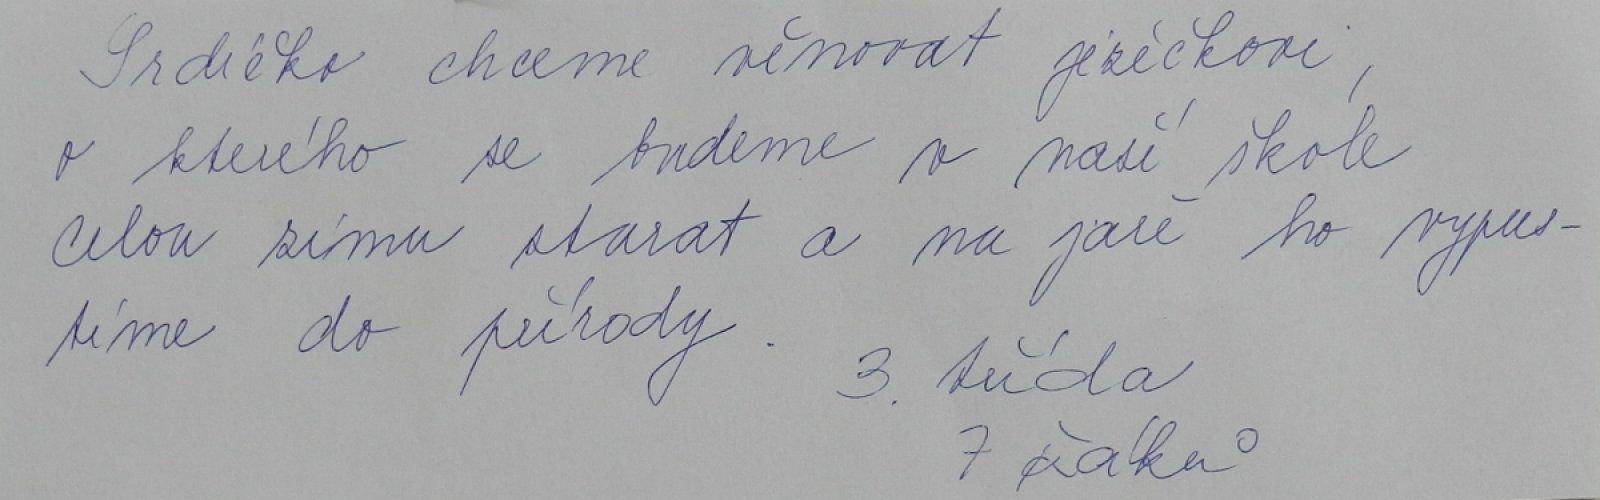 Srdíčko chceme věnovat ježečkovi,
o kterého se budeme v naší škole
celou zimu starat a na jaře ho vypus-
tíme do přírody.
3. třída
7 žáků